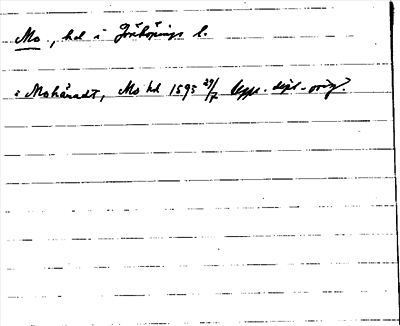 Mo, hd i Jönköpings l.
i Mohäradt, Mo hd 1595 29/7 Upps. dipl. orig.